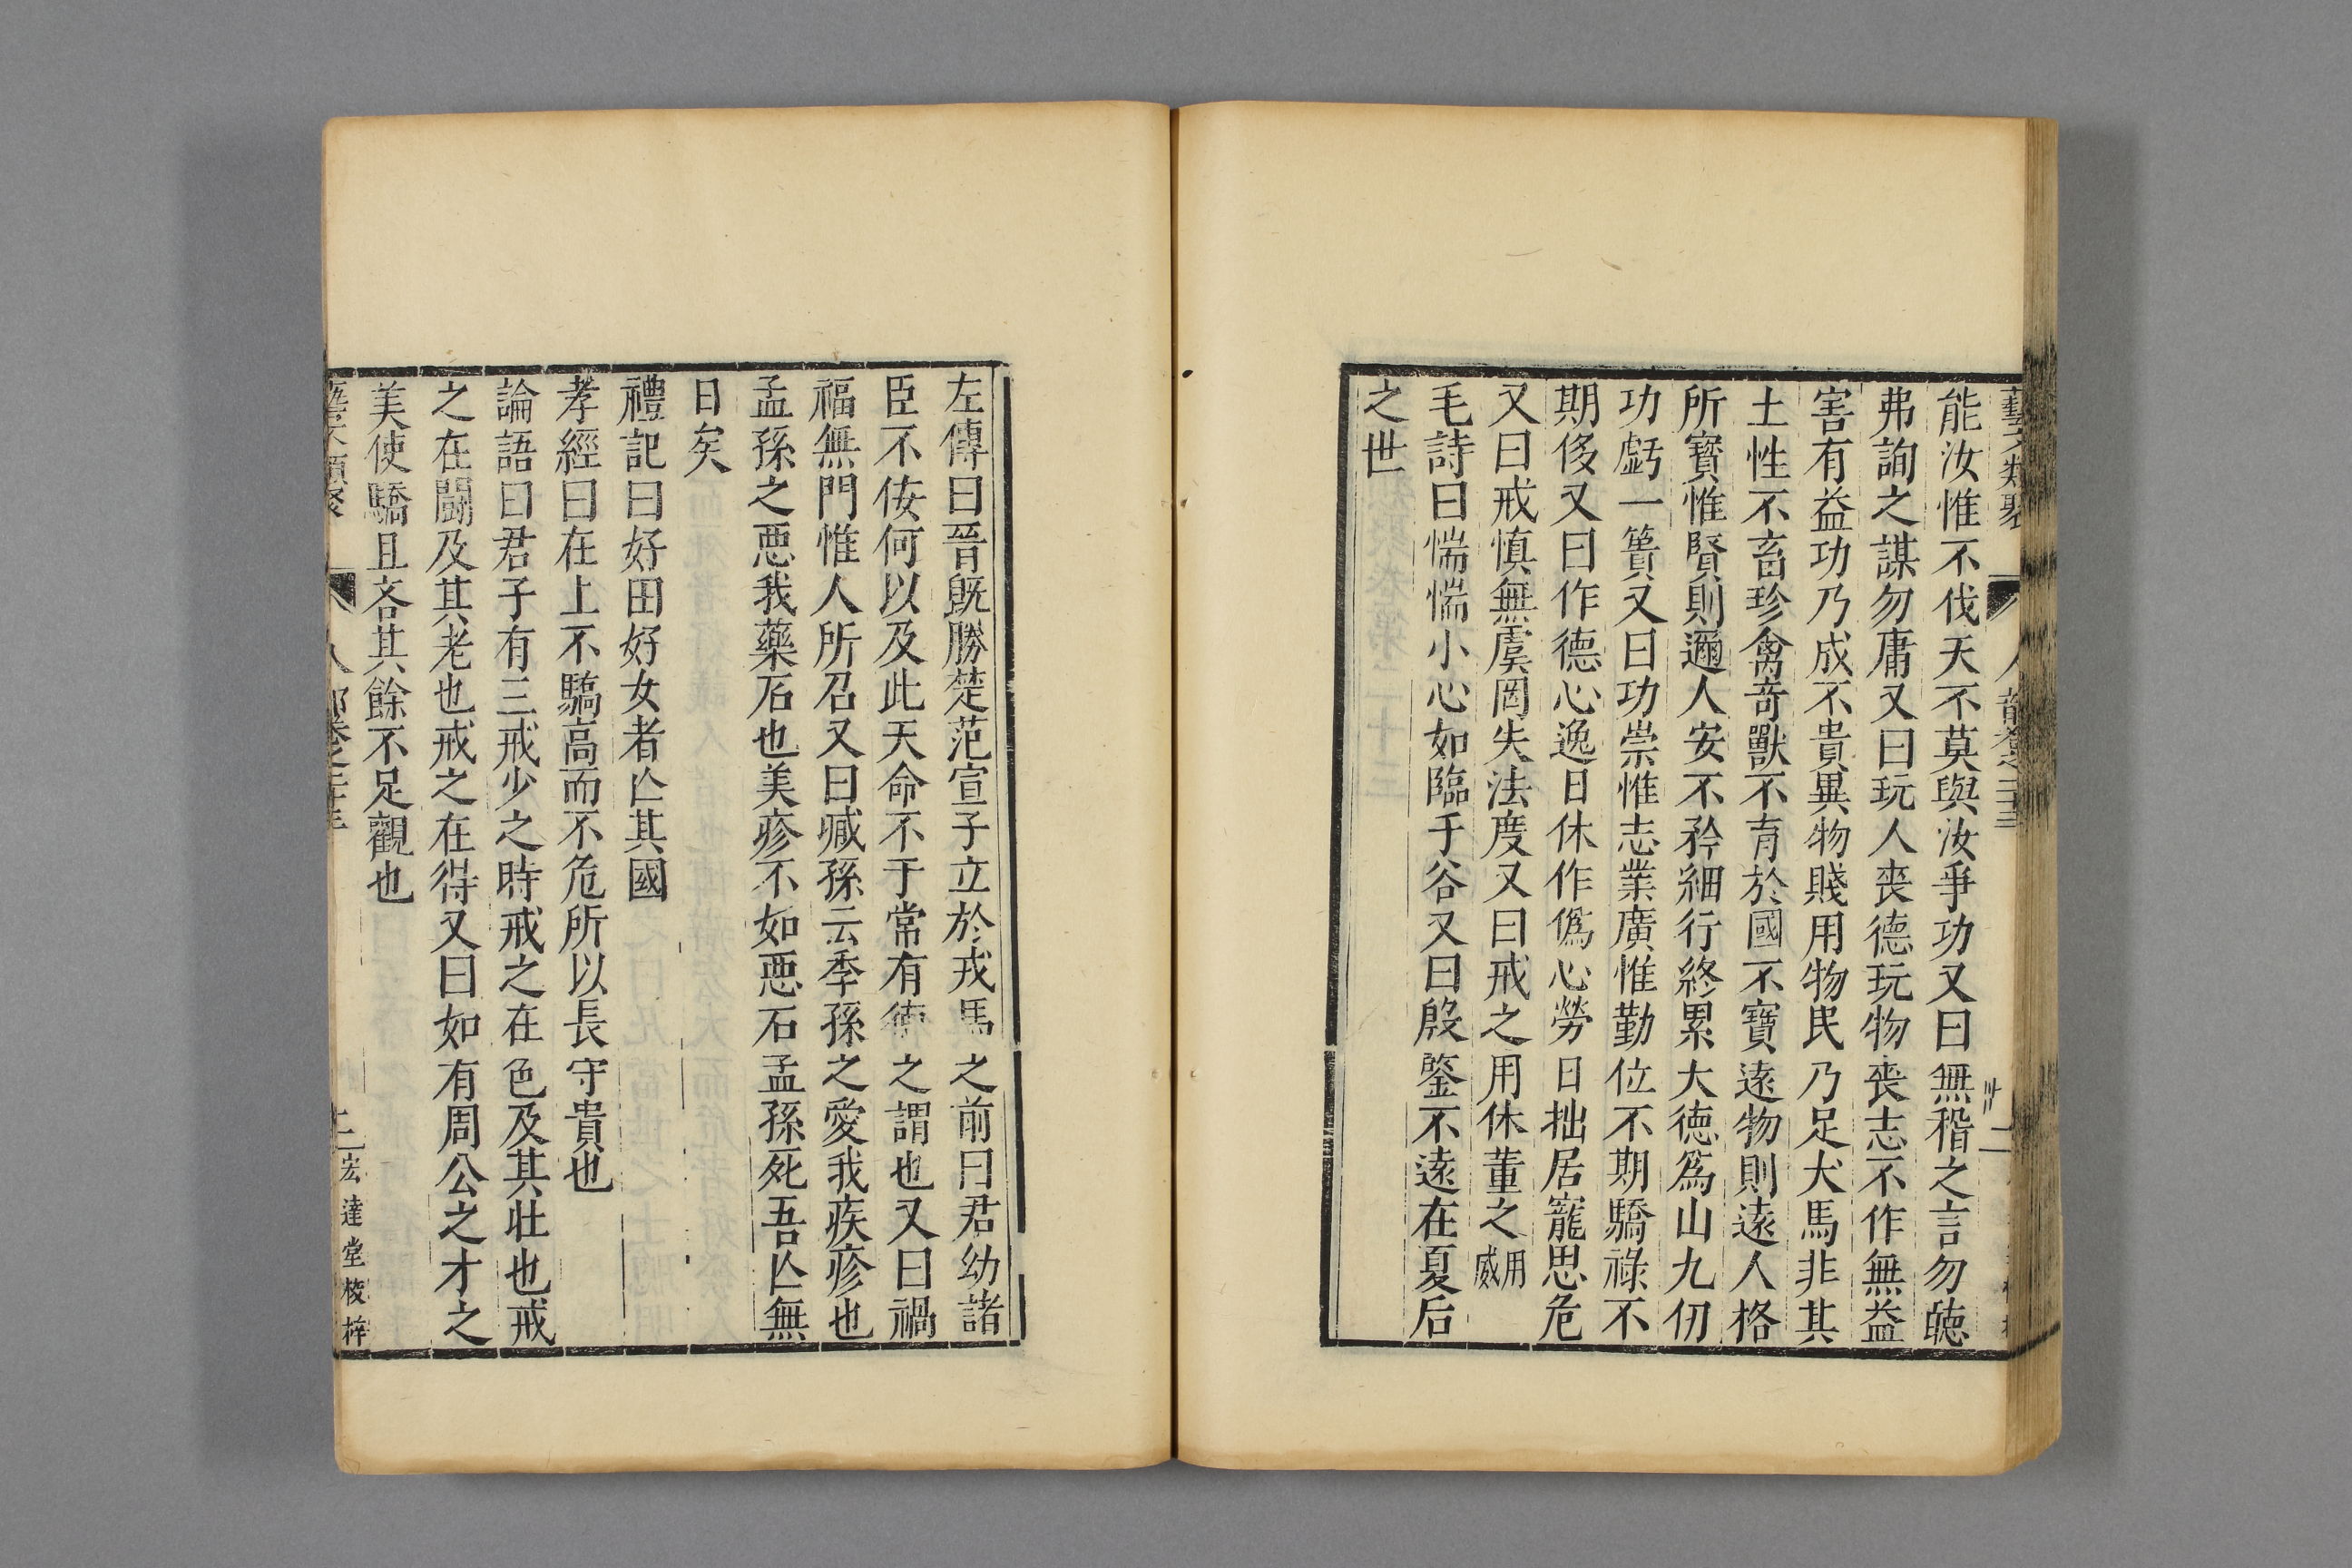 藝文類聚 人部卷之二十三 二
能汝惟不伐天不莫與汝爭功又曰無稽之言勿聴
弗詢之謀勿庸又曰玩人喪德玩物喪志不作無益
害有益功乃成不貴異物賤用物民乃足犬馬非其
土性不畜珍禽奇獸不育於國不寶遠物則遠人格
所寳惟賢則邇人安不矜細行終累大德爲山九仞
功虧一簣又曰功崇惟志業廣惟勤位不期驕祿不
期侈又曰作德心逸日休作僞心勞日拙居寵思危
又曰戒慎無虞罔失法度又曰戒之用休董之用威
毛詩曰惴惴小心如臨于谷又曰殷鑒不遠在夏后
之世
左傳曰晉旣勝楚范宣子立於戎馬之前曰君幼諸
臣不佞何以及此天命不于常有德之謂也又曰禍
福無門惟人所召又曰臧孫云季孫之愛我疾疹也
孟孫之惡我藥石也美疹不如惡石孟孫死吾亾無
日矣
禮記曰好田好女者亾其國
孝經曰在上不驕高而不危所以長守貴也
論語曰君子有三戒少之時戒之在色及其壯也戒
之在鬭及其老也戒之在得又曰如有周公之才之
美使驕且吝其餘不足觀也
藝文類聚 人部卷之二十三 二 宏達堂棱梓